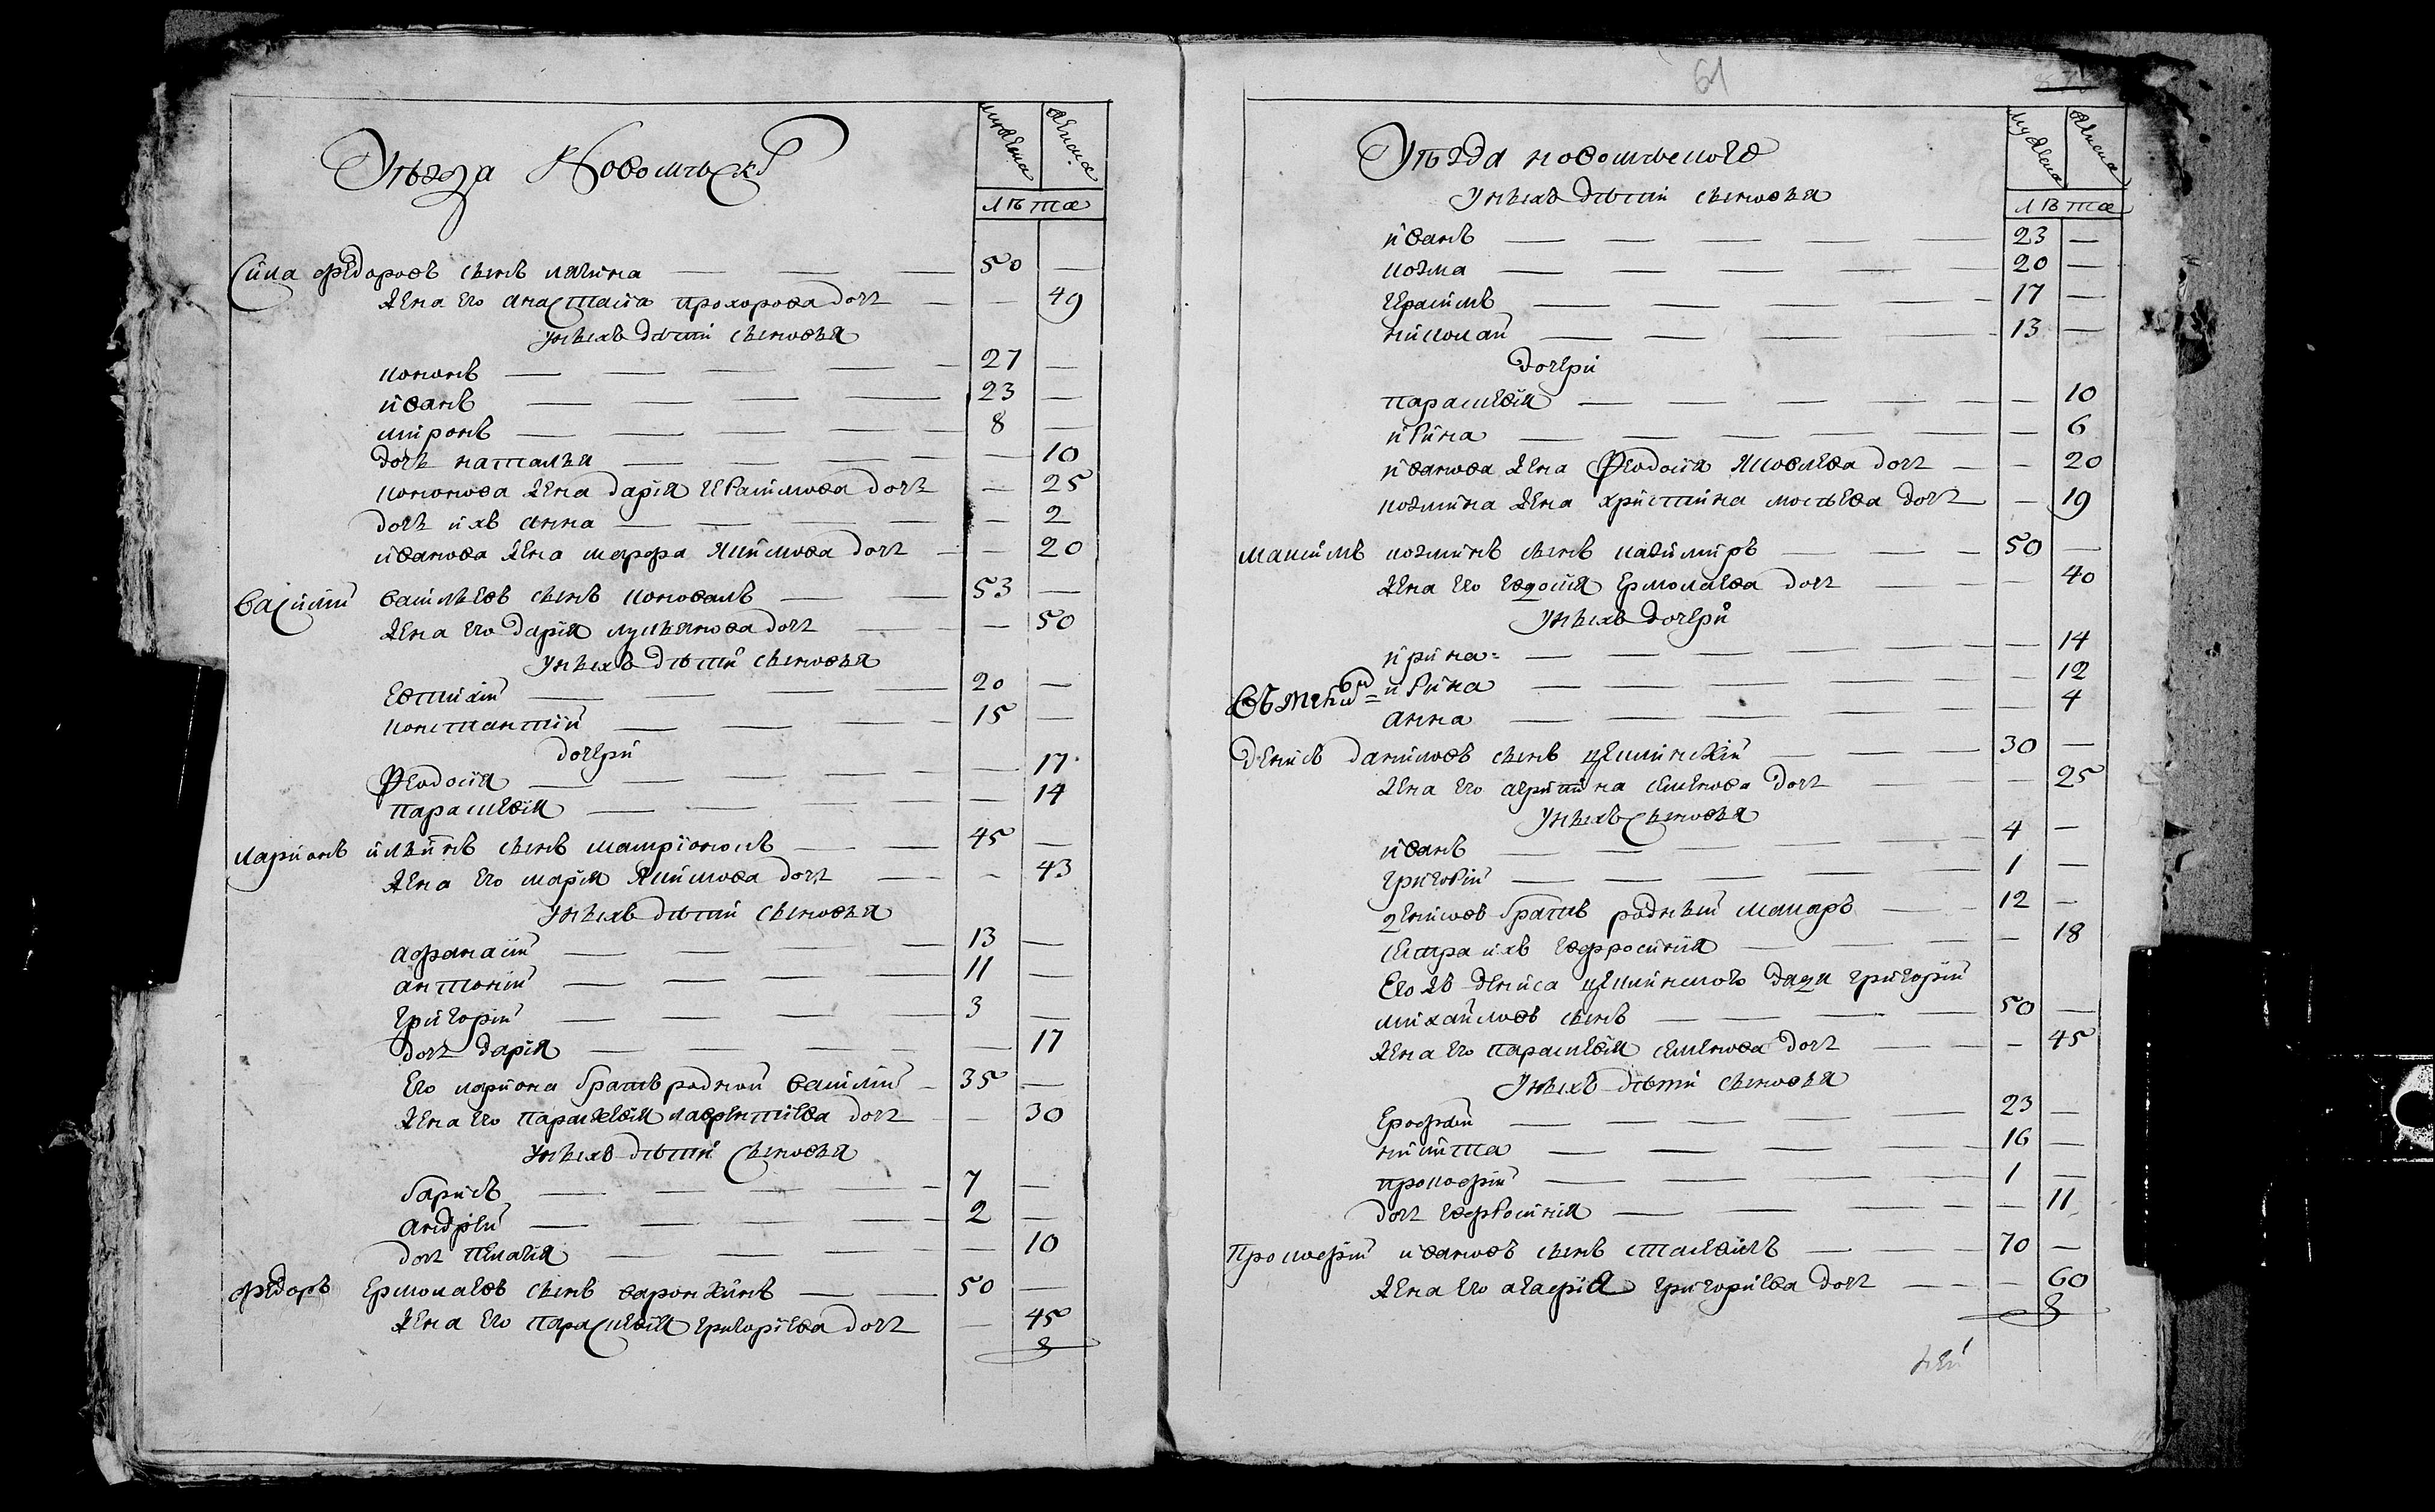 Уѣзда Новомлѣнск
мужеска
женска
лѣта
Сила Федоровъ сынъ лячина — 50 —
жена его анастасïа прохорова дочь — 49
у нихъ дѣти сыновья
кононъ — 27 —
иванъ — 23 —
миронъ — 8 —
дочь наталья — 10
кононова жена дарïя герасимова дочь — 25
дочь ихъ анна — 2
иванова жена марфа якимова дочь — 20
Василий васильевъ сынъ коновалъ — 53 —
жена его дарïя лукьянова дочь — 50
у нихъ дѣти сыновья
Евтихий — 20 —
константинъ — 15 —
дочери
Феодосïя — 17
параскевïя — 14
ларионъ ильинъ сынъ — 45 —
жена его марïя якимова дочь — 43
у нихъ дѣти сыновья
афанасïй — 13 —
антоний — 11 —
григорïй — 3 —
дочь дарïя — 17
Его лариона братъ родной василий — 35 —
жена его параскевïя лаврентïева дочь — 30
у нихъ дѣти сыновья
барисъ — 7 —
андрей — 2 —
дочь пелагïя — 10
федоръ Ермолаевъ сынъ варонжинъ — 50 —
жена его параскевïя григорïева дочь — 45
61
Уѣзда новомленского
мужеска
женска
лѣта
у нихъ дѣти сыновья
иванъ — 23 —
козма — 20 —
герасимъ — 17 —
николай — 13 —
дочери
параскевïя — 10
ирина — 6
иванова жена Феодосïя яковлева дочь — 20
козмина жена христина мосѣева дочь — 19
максимъ козминъ сынъ казимиръ — 50 —
жена его евдосïя ермолаева дочь — 40
у нихъ дочери
ирина — 14
ирина — 12
анна — 4
Денисъ даниловъ сынъ — 30 —
жена его агрипина семенова дочь — 25
у нихъ сыновья
иванъ — 4 —
григорий — 1 —
денисовъ братъ родный макаръ — 12 —
сестра ихъ евфросиния — 18
Его жъ дениса дядя григорïй
михайловъ сынъ — 50 —
жена его параскевïя семенова дочь — 45
у нихъ дѣти сыновья
Ерофей — 23 —
никита — 16 —
прокофий — 1 —
дочь евфросиния — 11
Прокофий ивановъ сынъ — 70 —
жена его агафïя григорïева дочь — 60